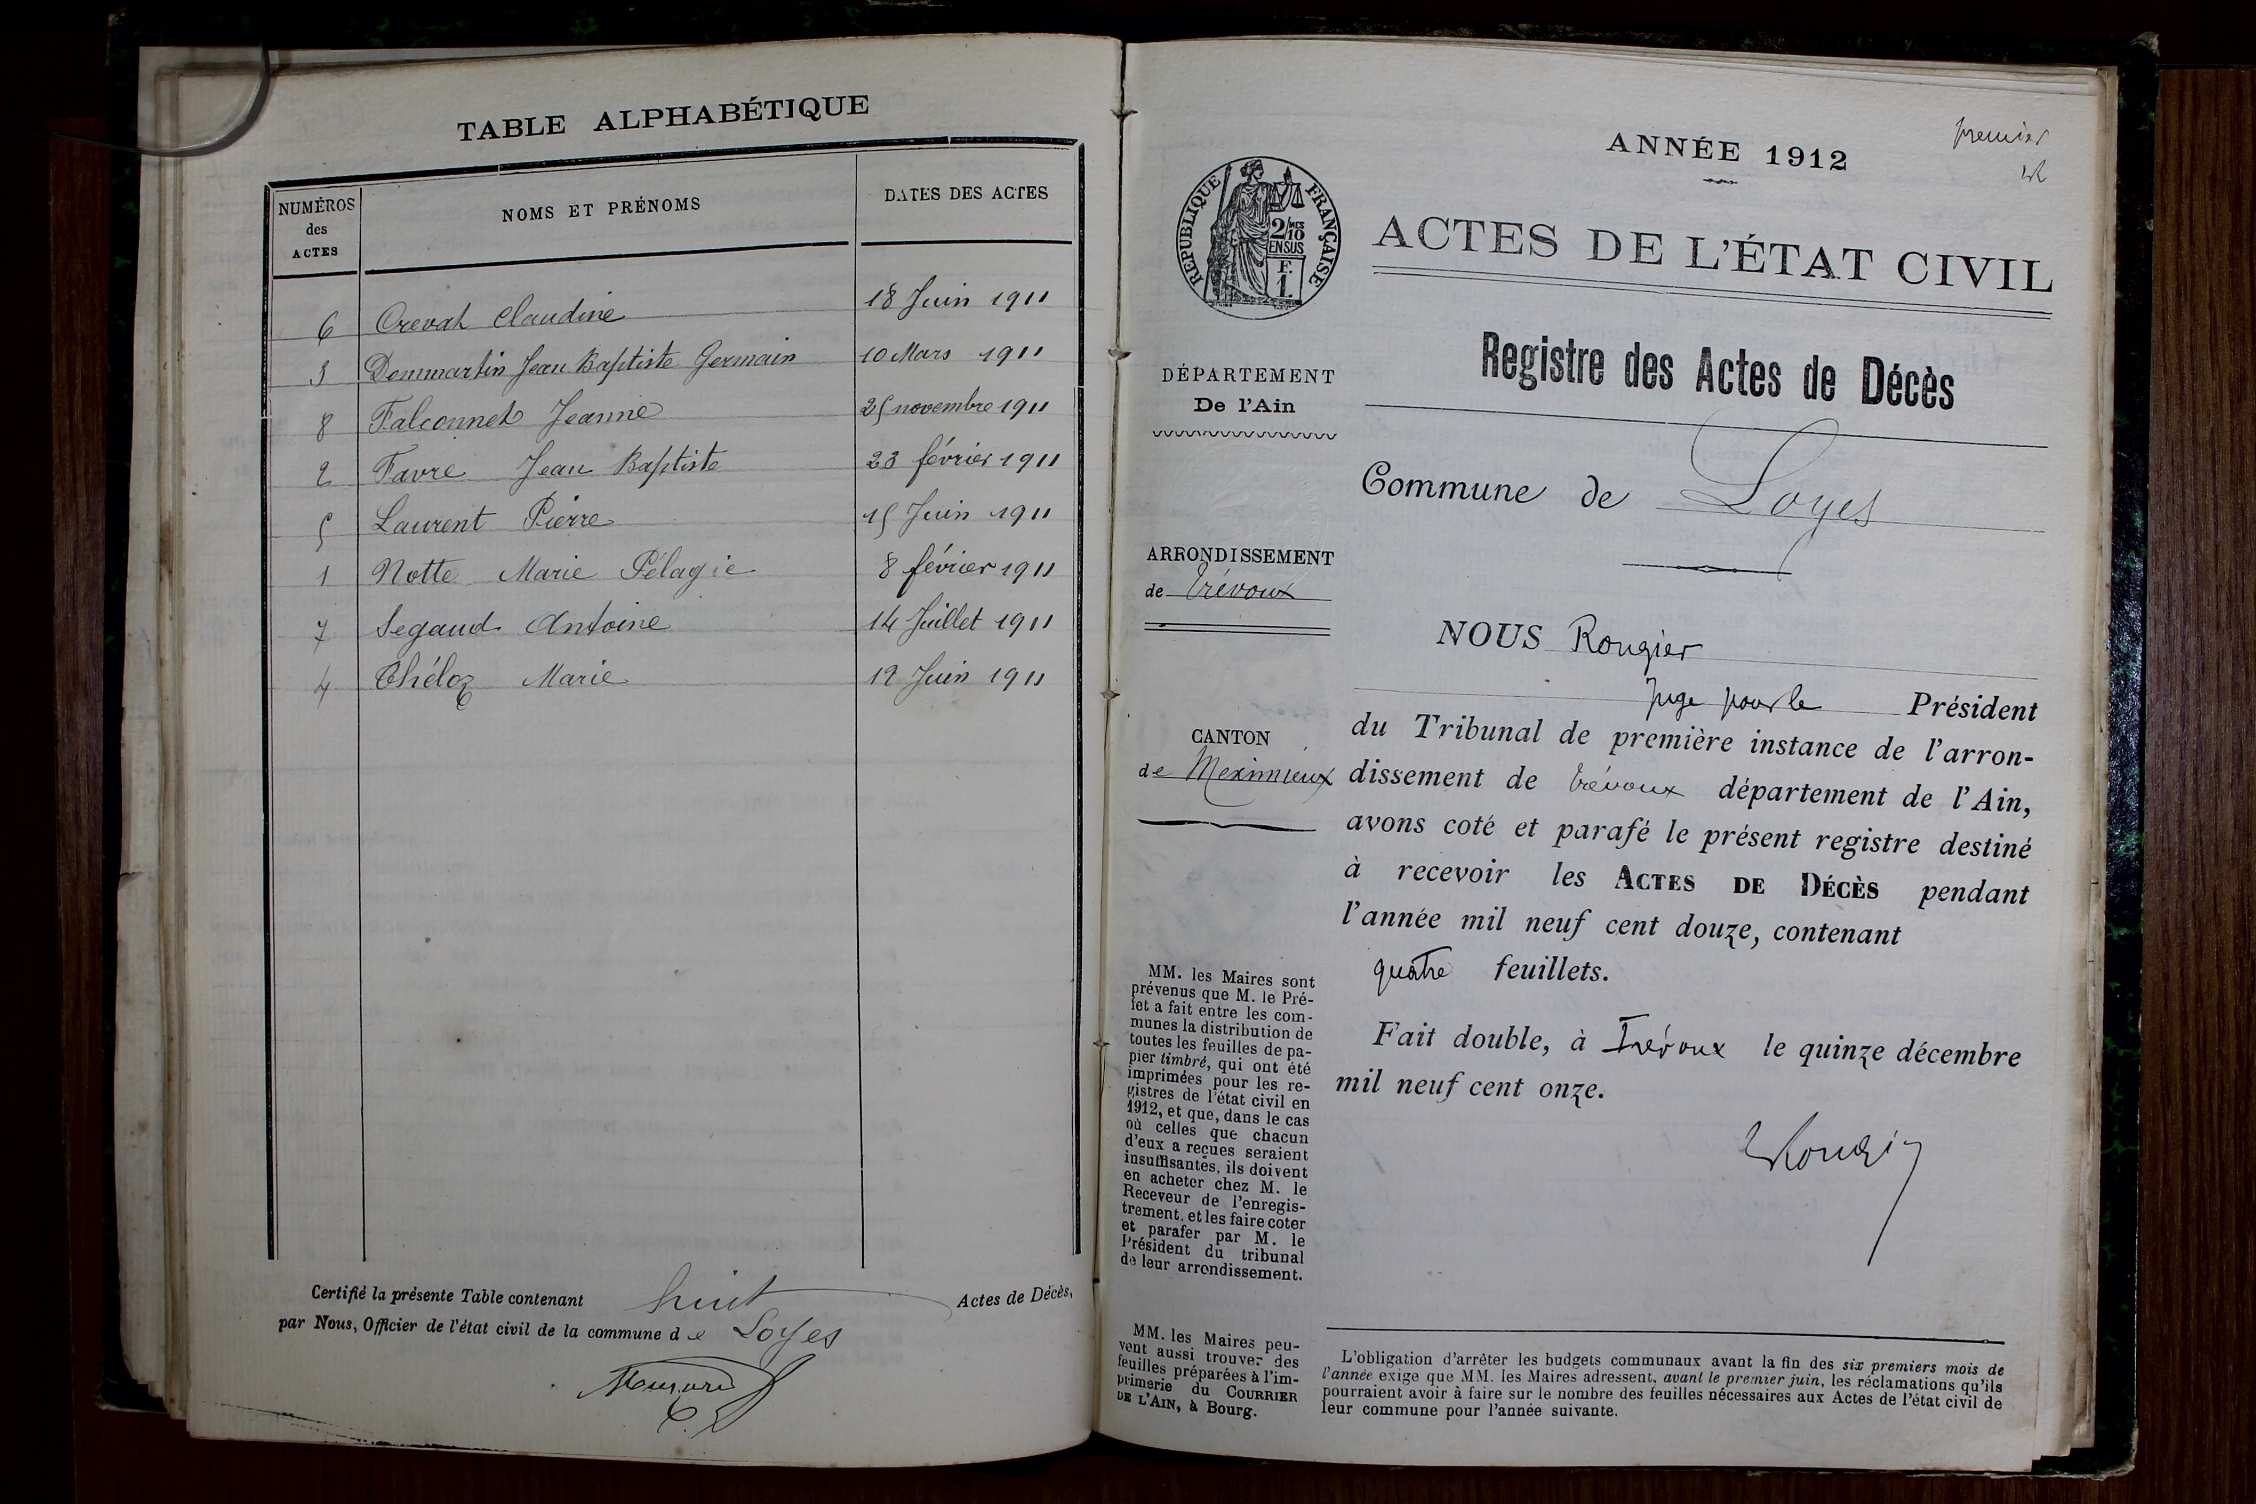 TABLE ALPHABÉTIQUE
NUMÉROS des ACTES
NOMS ET PRÉNOMS
DATES DES ACTES
6 Crevat Claudine 18 Juin 1911
3 Dommartin Jean Baptiste Germain 10 Mars 1911
8 Falconnet Jeanne 25 novembre 1911
2 Favre Jean Baptiste 23 février 1911
5 Laurent Pierre 15 Juin 1911
1 Notte Marie Pélagie 8 février 1911
7 Segaud Antoine 14 Juillet 1911
4 Théloz Marie 12 Juin 1911
Certifié la présente Table contenant huit Actes de Décès,
par Nous, Officier de l'état civil de la commune de Loyes
premier
ANNÉE 1912
RÉPUBLIQUE FRANÇAISE
2/10 MES
EN SUS
F.
1.
ACTES DE L'ÉTAT CIVIL
Registre des Actes de Décès
DÉPARTEMENT
De l'Ain
Commune de Loyes
ARRONDISSEMENT
de Trévoux
CANTON
de Meximieux
NOUS Rougier
Juge pour le Président
du Tribunal de première instance de l'arron-
dissement de Trévoux département de l'Ain,
avons coté et parafé le présent registre destiné
à recevoir les ACTES DE DÉCÈS pendant
l'année mil neuf cent douze, contenant
quatre feuillets.
Fait double, à Trévoux le quinze décembre
mil neuf cent onze.
Rougier
MM. les Maires sont
prévenus que M. le Pré-
fet a fait entre les com-
munes la distribution de
toutes les feuilles de pa-
pier timbré, qui ont été
imprimées pour les re-
gistres de l'état civil en
1912, et que, dans le cas
où celles que chacun
d'eux a reçues seraient
insuffisantes, ils doivent
en acheter chez M. le
Receveur de l'enregis-
trement, et les faire coter
et parafer par M. le
Président du tribunal
de leur arrondissement.
MM. les Maires peu-
vent aussi trouver des
feuilles préparées à l'im-
primerie du COURRIER
DE L'AIN, à Bourg.
L'obligation d'arrêter les budgets communaux avant la fin des six premiers mois de
l'année exige que MM. les Maires adressent, avant le premier juin, les réclamations qu'ils
pourraient avoir à faire sur le nombre des feuilles nécessaires aux Actes de l'état civil de
leur commune pour l'année suivante.